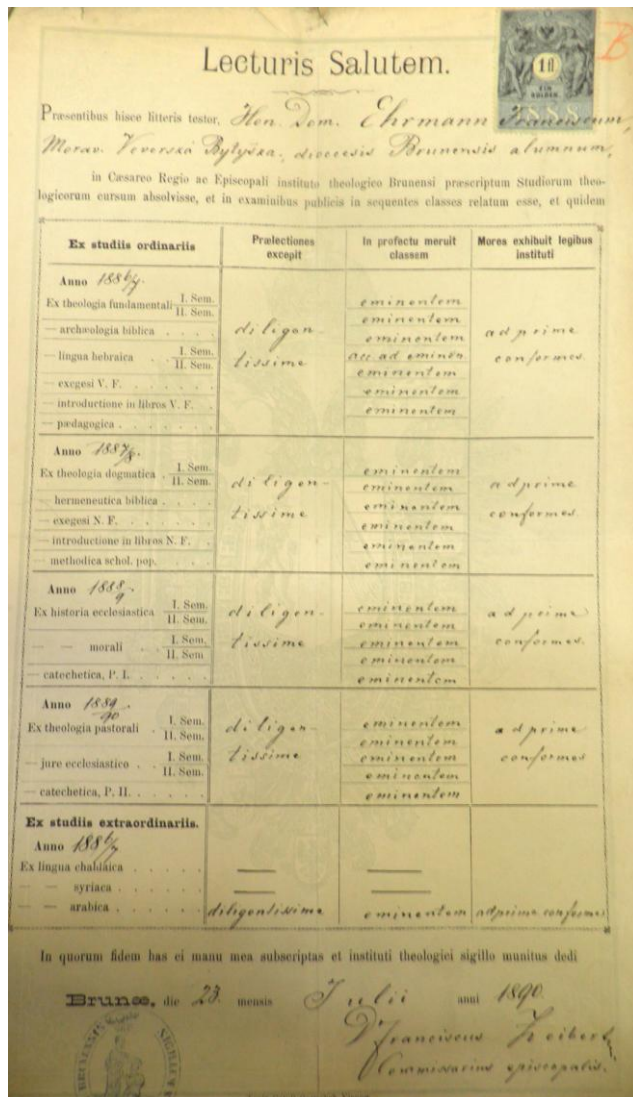 Lecturis Salutem.
1 fl
B
Præsentibus hisce litteris testor, Hon. Dom. Ehrmann Franciscum,
Morav. Veverská Bytyška, dioecesis Brunensis alumnum,
in Cæsareo Regio ac Episcopali instituto theologico Brunensi præscriptum Studiorum theo-
logicorum cursum absolvisse, et in examinibus publicis in sequentes classes relatum esse, et quidem
Ex studiis ordinariis Prælectiones excepit In profectu meruit classem Mores exhibuit legibus instituti
Anno 1886/7
Ex theologia fundamentali I. Sem. eminentem
II. Sem. eminentem
— archæologia biblica . . . . . diligen- eminentem adprime
— lingua hebraica . . I. Sem. tissime acc ad eminen conformes.
II. Sem. eminentem
— exegesi V. F. . . . . . . eminentem
— introductione in libros V. F. . eminentem
— pædagogica . . . . . . .
Anno 1887/8
Ex theologia dogmatica . I. Sem. eminentem
II. Sem. diligen- eminentem adprime
— hermeneutica biblica . . . . tissime eminentem conformes.
— exegesi N. F. . . . . . . eminentem
— introductione in libros N. F. . eminentem
— methodica schol. pop. . . . eminentem
Anno 1888/9
Ex historia ecclesiastica I. Sem. diligen- eminentem adprime
II. Sem. eminentem
— — morali . . I. Sem. tissime eminentem conformes.
II. Sem eminentem
— catechetica, P. I. . . . . . eminentem
Anno 1889/90
Ex theologia pastorali . I. Sem. diligen- eminentem adprime
II. Sem. eminentem
— jure ecclesiastico . . I. Sem. tissime eminentem conformes
II. Sem. eminentem
— catechetica, P. II. . . . . . eminentem
Ex studiis extraordinariis.
Anno 1886/7
Ex lingua chaldaica . . . . . — —
— — syriaca . . . . . . . — —
— — arabica . . . . . . . diligentissime eminentem adprime conformes
In quorum fidem has ei manu mea subscriptas et instituti theologici sigillo munitus dedi
Brunæ, die 23. mensis Julii anni 1890.
Dr Franciscus Zeibert,
Commissarius episcopalis.